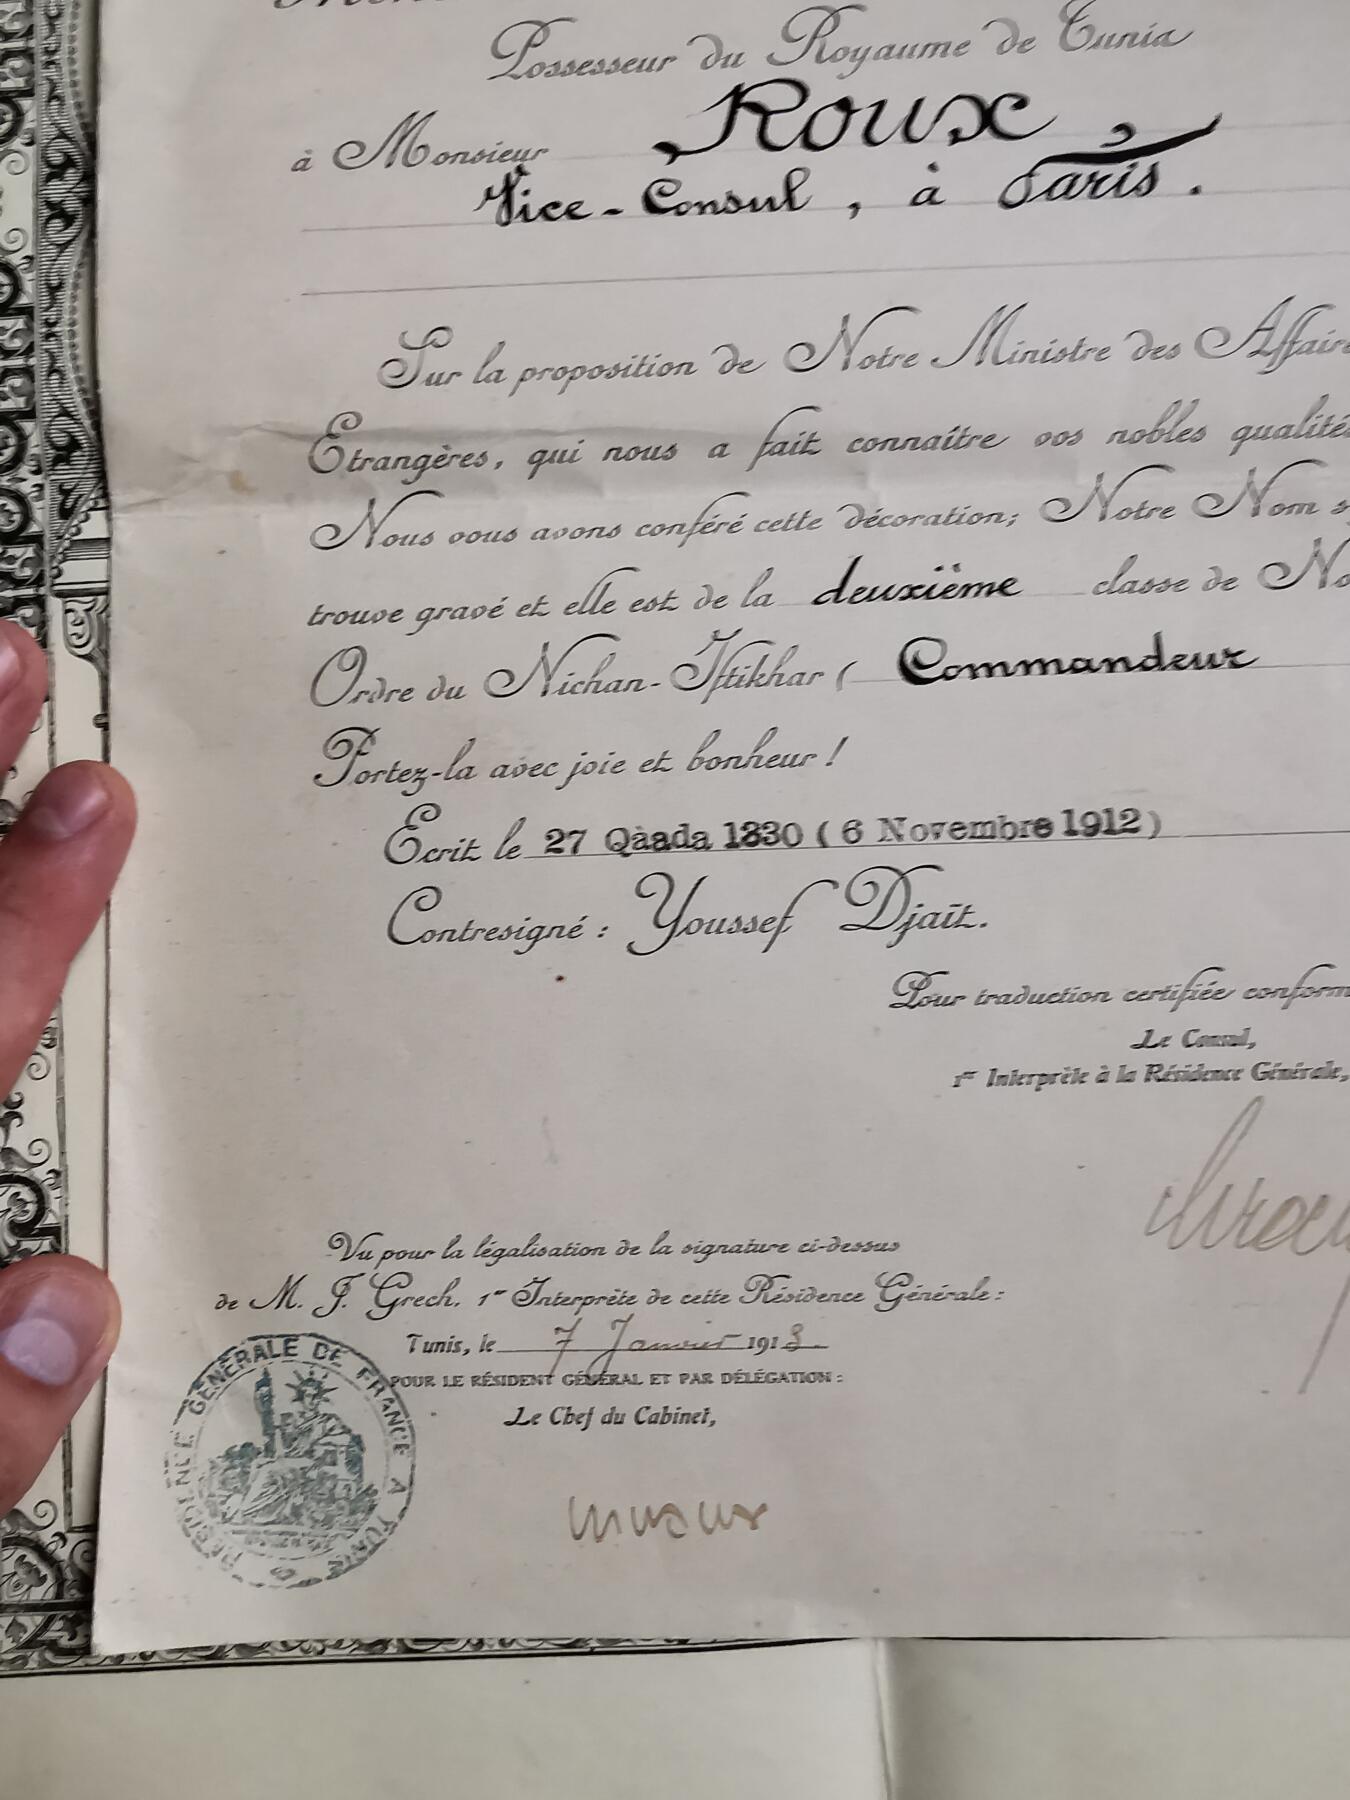 Possesseur du Royaume de Tunis
à Monsieur Roux,
Vice-Consul, à Paris.
Sur la proposition de Notre Ministre des Affaire
Etrangères, qui nous a fait connaître vos nobles qualité
Nous vous avons conféré cette décoration; Notre Nom s'y
trouve gravé et elle est de la deuxième classe de No
Ordre du Nichan-Iftikhar ( Commandeur
Portez-la avec joie et bonheur !
Ecrit le 27 Qàada 1330 ( 6 Novembre 1912 )
Contresigné : Youssef Djaït.
Pour traduction certifiée conform
Le Consul,
1er Interprète à la Résidence Générale,
Vu pour la légalisation de la signature ci-dessus
de M. J. Grech, 1er Interprète de cette Résidence Générale :
Tunis, le 7 Janvier 1913.
POUR LE RÉSIDENT GÉNÉRAL ET PAR DÉLÉGATION :
Le Chef du Cabinet,
RÉSIDENCE GÉNÉRALE DE FRANCE A TUNIS